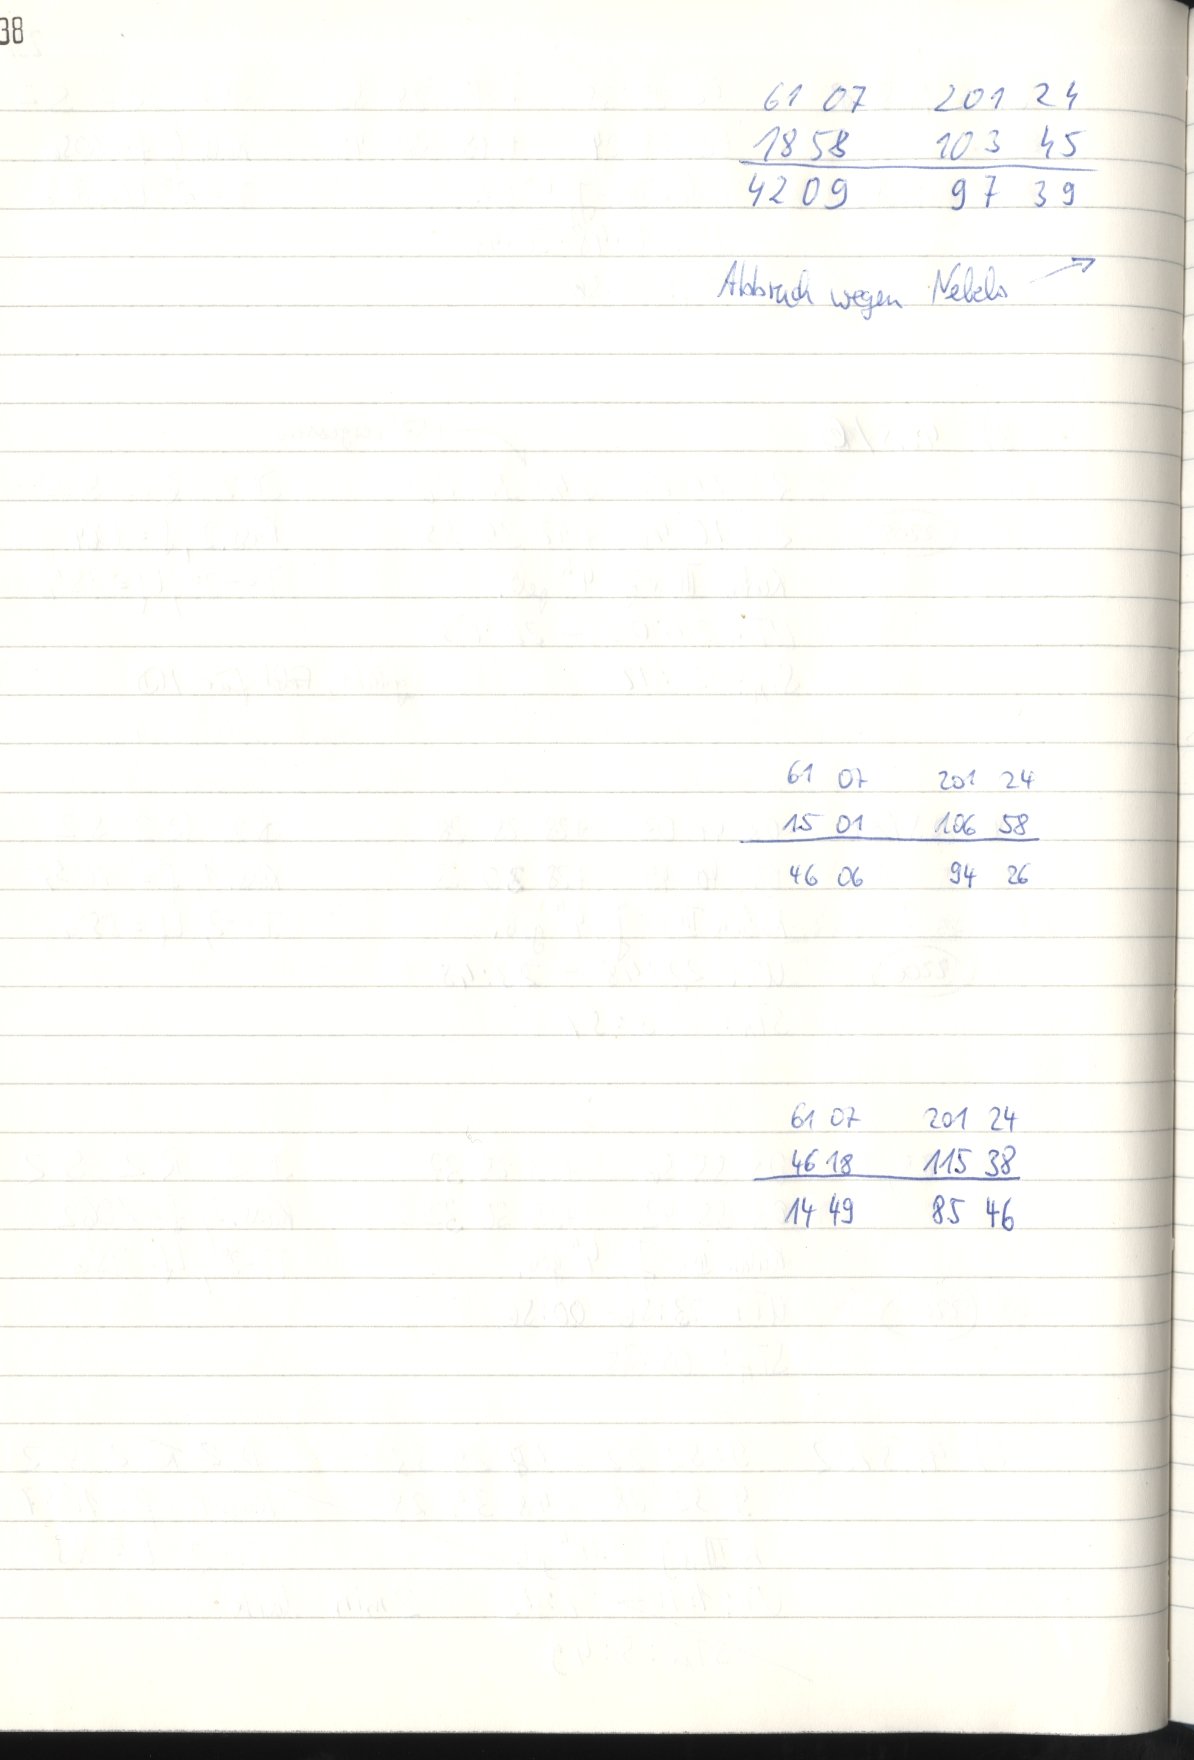 38
61 07 201 24
18 58 103 45
42 09 97 39
Abbruch wegen Nebels
61 07 201 24
15 01 106 58
46 06 94 26
61 07 201 24
46 18 115 38
14 49 85 46